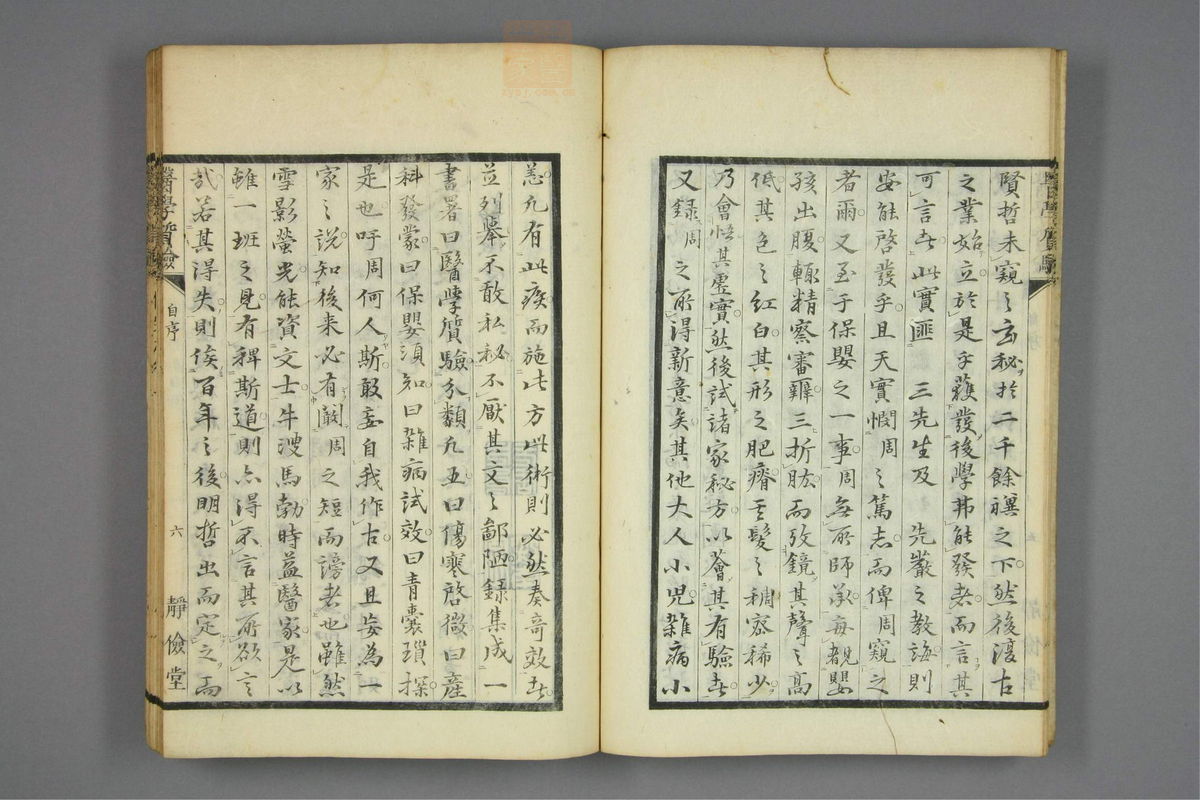 賢哲未窺之玄秘於二千餘禩之下然後復古
之業始立於是乎蔭發後學弗能發者而言其
可言者此實匪　三先生及　先嚴之教誨則
安能啓發乎且天實憫周之篤志而俾周窺之
者爾又至于保嬰之一事周無所師承每覩嬰
孩出腹輒精察審辨三折肱而攷鏡其聲之高
低其色之紅白其形之肥瘠其髮之稠密稀少
乃會悟其虛實然後試諸家秘方以薈其有驗者
又録周之所得新意矣其他大人小児雜病小
恙凡有此疾而施此方此術則必然奏奇效者
並列舉不敢私秘不厭其文之鄙陋録集成一
書署曰醫學質驗分類凡五曰傷寒啓微曰產
科發蒙曰保嬰須知曰雜病試效曰青囊瑣探
是也吁周何人斯敢妄自我作古又且妄為一
家之說知後来必有闚周之短而謗者也雖然
雪影螢光能資文士牛溲馬勃時益醫家是以
雖一班之見有稗斯道則亦得不言其所欲言
哉若其得失則俟百年之後明哲出而定之焉
醫學質驗
自序
六
靜儉堂